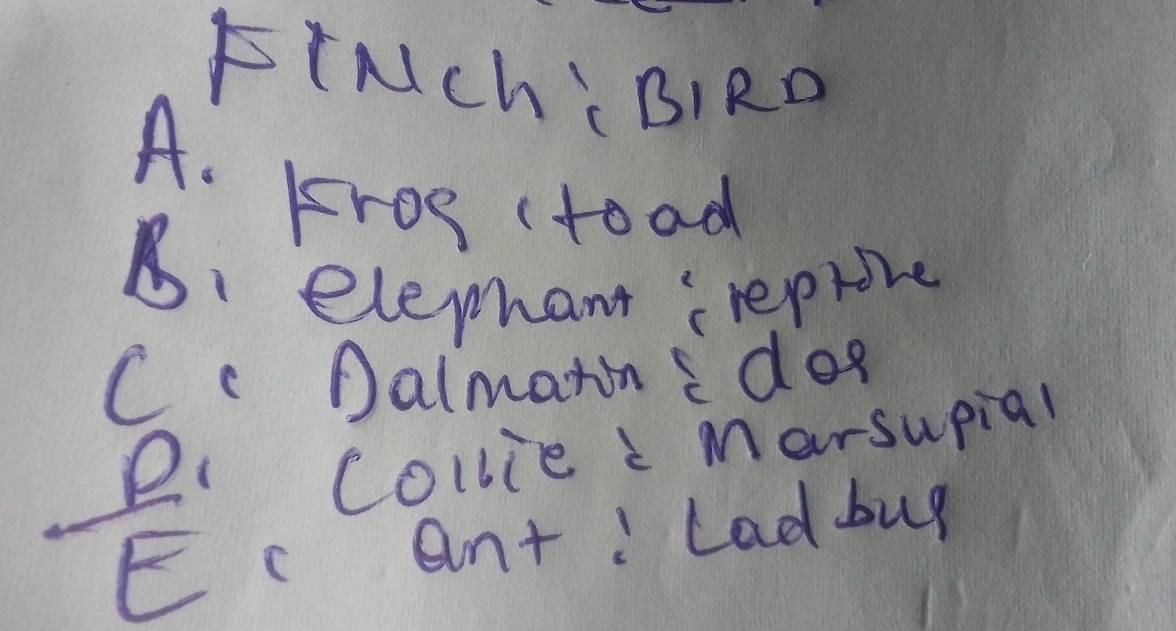 FINch : BIRD
A. Frog : toad
B. elephant : reptile
C. Dalmatin : dog
D. Collie : Marsupial
E. ant : Ladbug